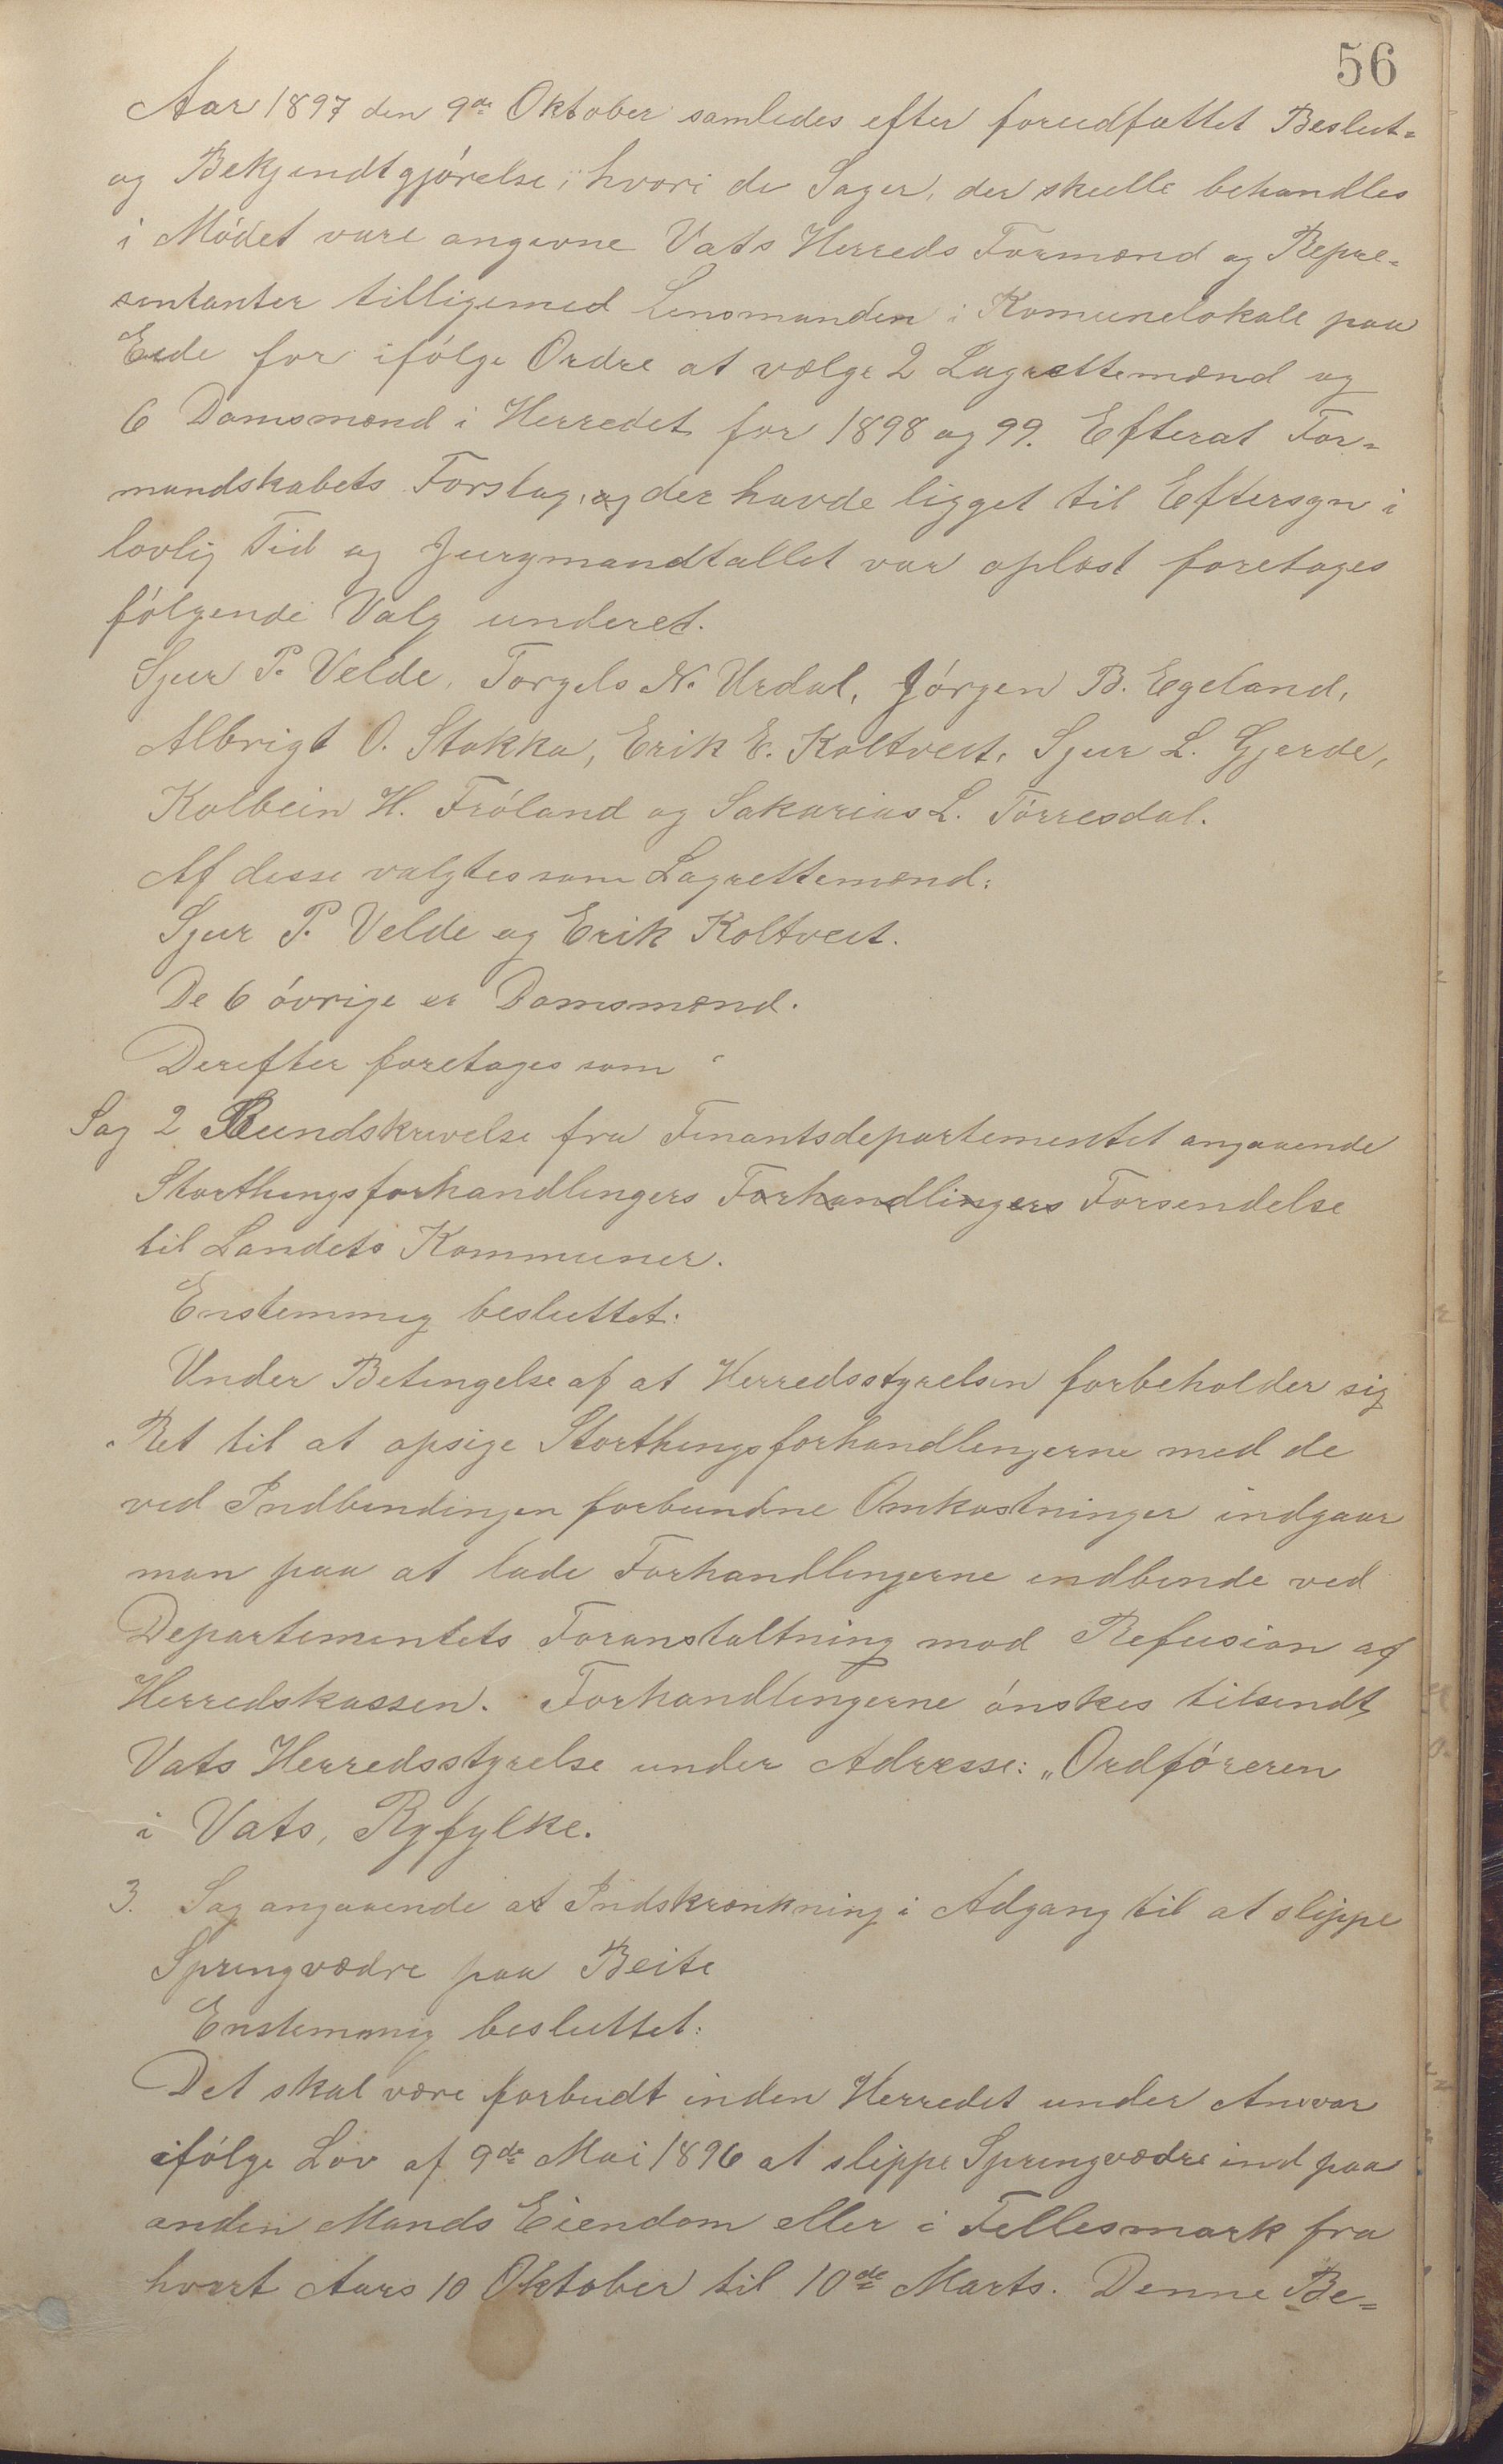 56
Aar 1897 den 9de Oktober samledes efter forudfattet Beslut-
og Bekjendtgjørelse, hvori de Sager, der skulle behandles
i Mødet vare angivne Vats Herreds Formænd og Repre-
sentanter tilligemed Lensmanden i Komunelokale paa
Eide for ifølge Ordre at vælge 2 Lagrettemænd og
6 Domsmænd i Herredet for 1898 og 99. Efterat For-
mandskabets Forslag, og der havde ligget til Eftersyn i
lovlig Tid og Jurymandtallet var oplæst foretages
følgende Valg underet.
Sjur P. Velde, Torgels N. Urdal, Jørgen B. Egeland,
Albrigt O. Stakka, Erik E. Koltveit, Sjur L. Gjerde,
Kolbein H. Frøland og Sakarias L. Tørresdal.
Af disse valgtes som Lagrettemænd:
Sjur P. Velde og Erik Koltveit.
De 6 øvrige er Domsmænd.
Derefter foretages som
Sag 2 Rundskrivelse fra Finantsdepartementet angaaende
Storthingsforhandlingers Forhandlingers Forsendelse
til Landets Kommuner.
Enstemmig besluttet:
Under Betingelse af at Herredsstyrelsen forbeholder sig
Ret til at opsige Storthingsforhandlingerne med de
ved Indbindingen forbundne Omkostninger indgaar
man paa at lade Forhandlingerne indbinde ved
Departementets Foranstaltning mod Refusion af
Herredskassen. Forhandlingerne ønskes tilsendt
Vats Herredsstyrelse under Adresse: „Ordføreren
i Vats, Ryfylke.
3. Sag angaaende at Indskrænkning i Adgang til at slippe
Springvædre paa Beite
Enstemmig besluttet:
Det skal være forbudt inden Herredet under Ansvar
ifølge Lov af 9de Mai 1896 at slippe Springvædre ind paa
anden Mands Eiendom eller i Fellesmark fra
hvert Aars 10 Oktober til 10de Marts. Denne Be-